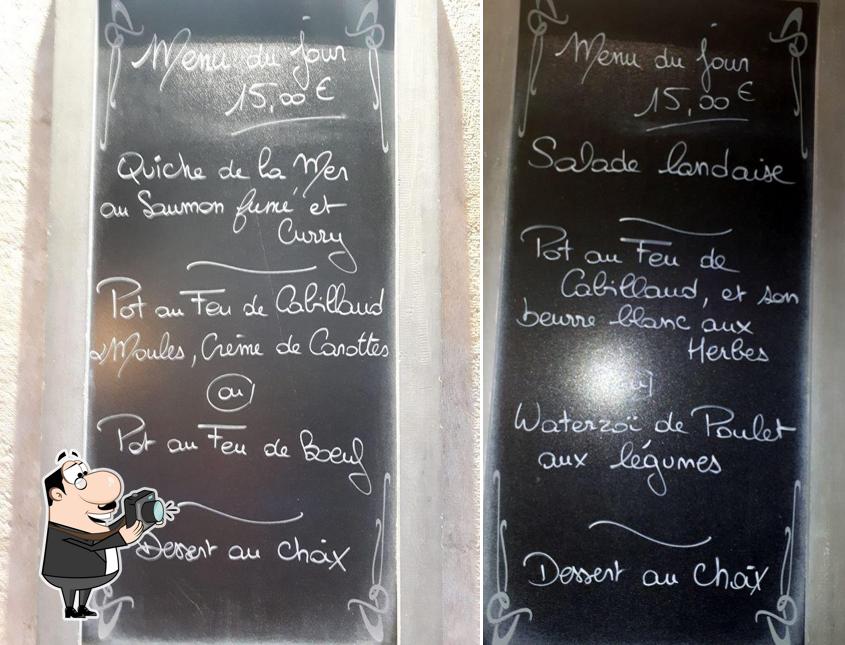 Menu du jour
15,00 €
Quiche de la Mer
au Saumon fumé et
Curry
Pot au Feu de Cabillaud
& Moules, Crème de Carottes
ou
Pot au Feu de Boeuf
Dessert au choix
Menu du jour
15,00 €
Salade landaise
Pot au Feu de
Cabillaud, et son
beurre blanc aux
Herbes
ou
Waterzoï de Poulet
aux légumes
Dessert au choix